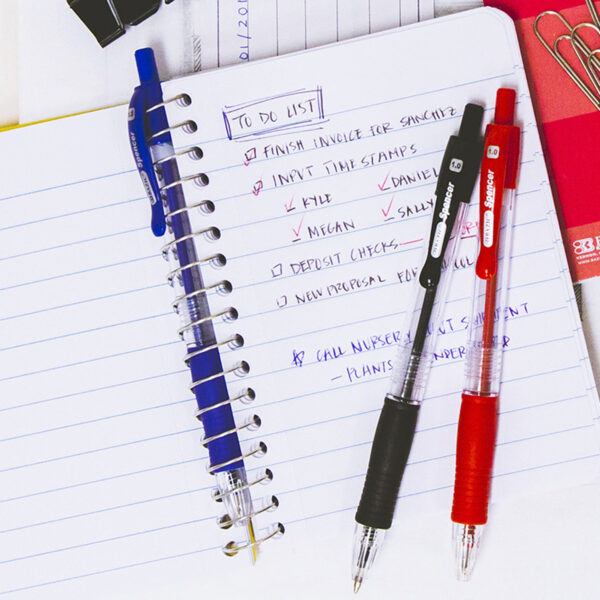 01/20
TO DO LIST
FINISH INVOICE FOR SANCHEZ
INPUT TIMESTAMPS
KYLE
DANIEL
MEGAN
SALLY
DEPOSIT CHECKS —
NEW PROPOSAL FOR
CALL NURSERY
— PLANTS
1.0
Spencer
1.0
Spencer
Spencer